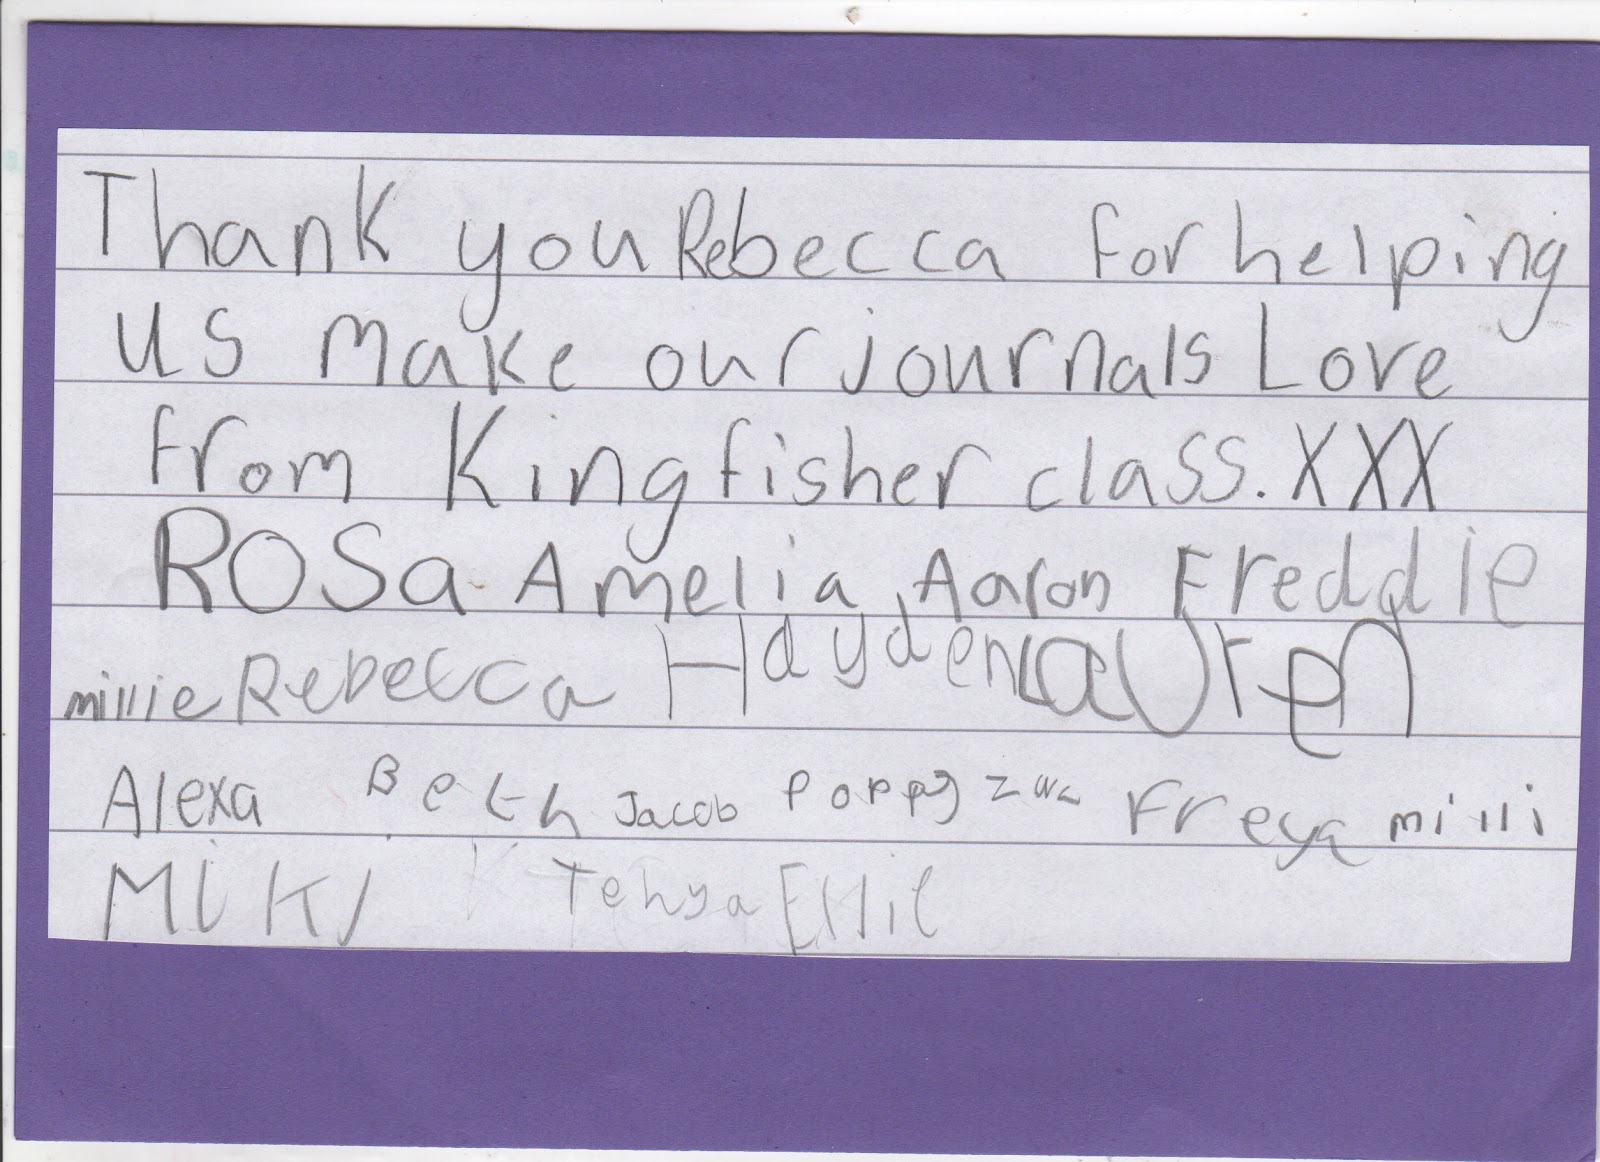 Thank you Rebecca for helping
us make our journals Love
from Kingfisher class. XXX
Rosa Amelia Aaron Freddie
millie Rebecca Hayden Lauren
Alexa Beth Jacob Poppy Freya milli
Miki Tehya